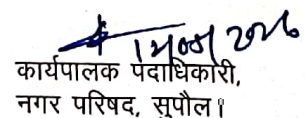 कार्यपालक पदाधिकारी,
नगर परिषद, सुपौल।